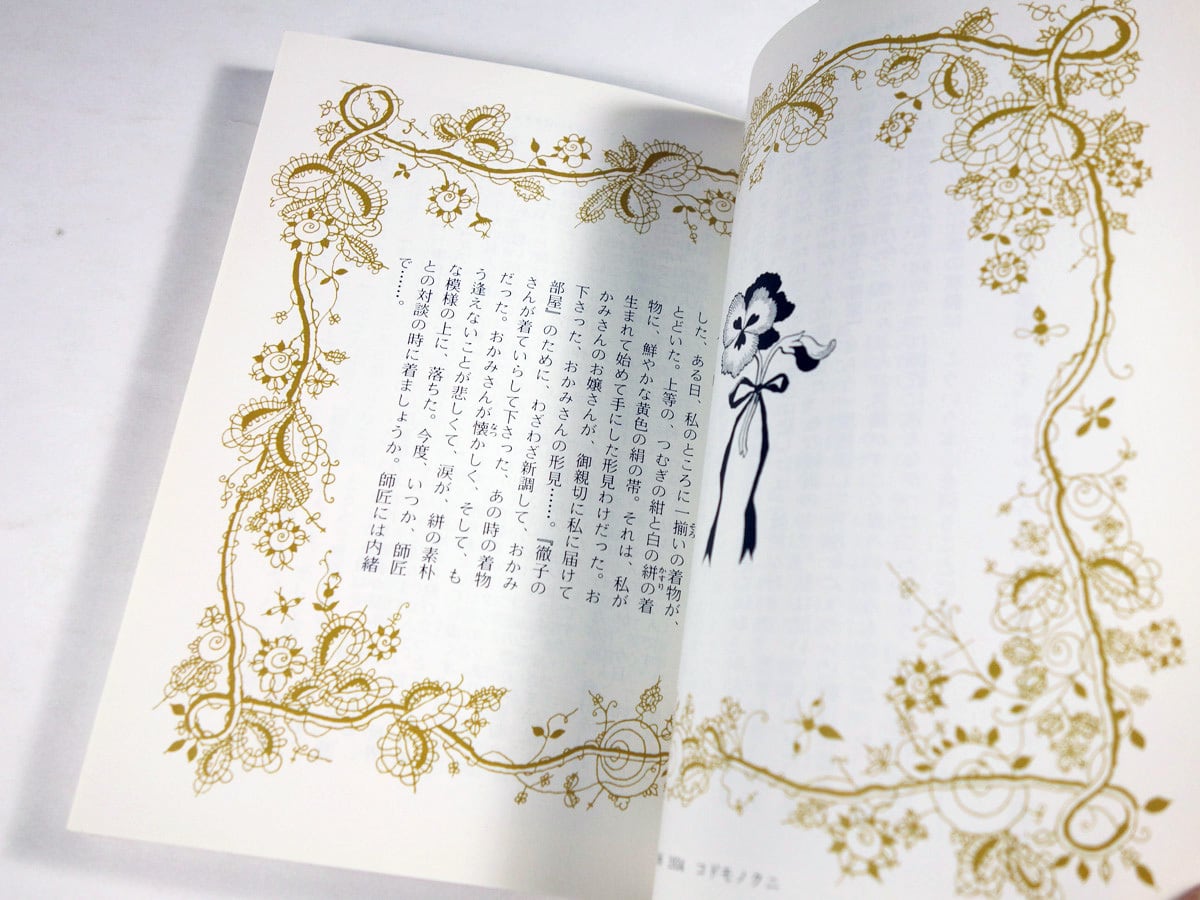 した、ある日、私のところに一揃いの着物が、
とどいた。上等の、つむぎの紺と白の絣の着
物に、鮮やかな黄色の絹の帯。それは、私が
生まれて始めて手にした形見わけだった。お
かみさんのお嬢さんが、御親切に私に届けて
下さった、おかみさんの形見……。『徹子の
部屋』のために、わざわざ新調して、おかみ
さんが着ていらして下さった、あの時の着物
だった。おかみさんが懐かしく、そして、も
う逢えないことが悲しくて、涙が、絣の素朴
な模様の上に、落ちた。今度、いつか、師匠
との対談の時に着ましょうか。師匠には内緒
で……。
コドモノクニ